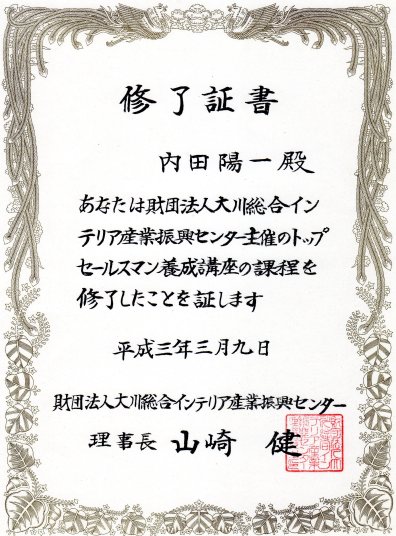 修了証書
内田陽一殿
あなたは財団法人大川総合イン
テリア産業振興センター主催のトップ
セールスマン養成講座の課程を
修了したことを証します
平成三年三月九日
財団法人大川総合インテリア産業振興センター
理事長 山崎 健